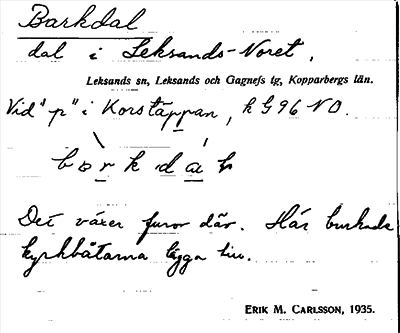 Barkdal
dal i Leksands-Noret,
Leksands sn, Leksands och Gagnefs tg, Kopparbergs län.
Vid "p" i Korstäppan, k G 96 NO.
bo̲r̲k da̲l
Det växer furor där. Här brukade
kyrkbåtarna lägga till.
ERIK M. CARLSSON, 1935.